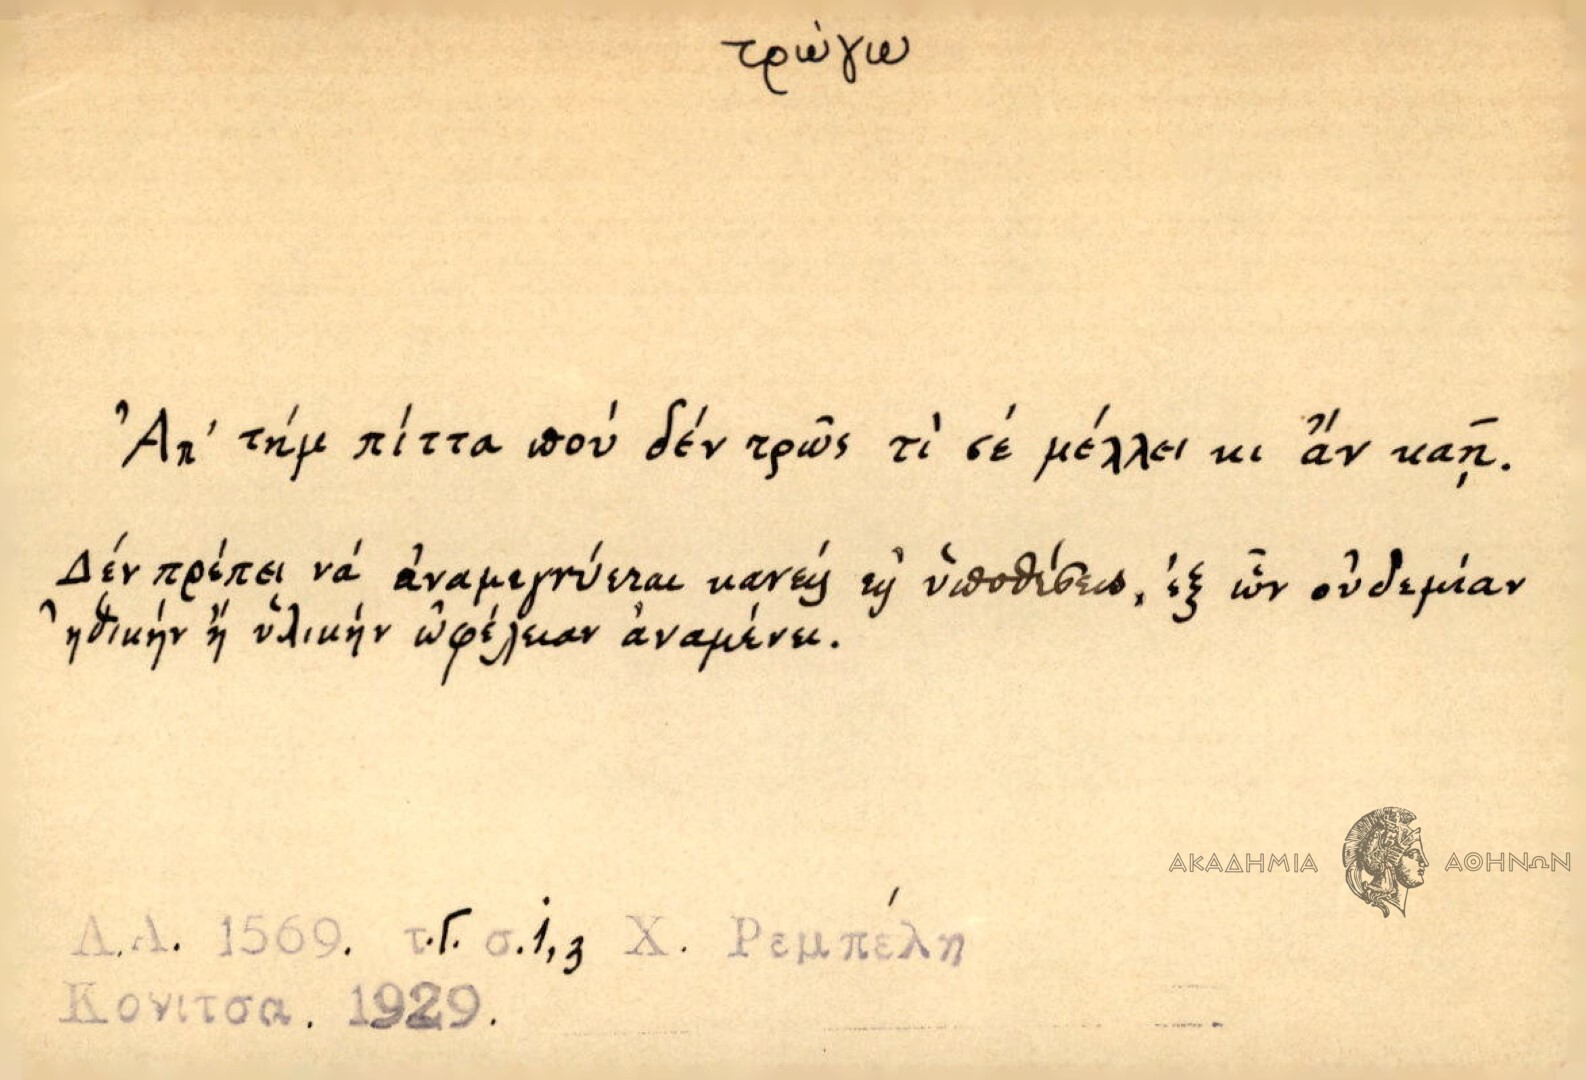 τρώγω
Ἀπ' τήμ πίττα πού δέν τρῶς τί σέ μέλλει κι ἄν καῇ.
Δέν πρέπει νά ἀναμιγνύεται κανείς εἰς ὑποθέσεις, ἐξ ὧν οὐδεμίαν
ἠθικήν ἤ ὑλικήν ὠφέλειαν ἀναμένει.
ΑΚΑΔΗΜΙΑ ΑΘΗΝΩΝ
Λ.Α. 1569. τ.Γ. σ.1,3 Χ. Ρεμπέλη
Κονιτσα. 1929.